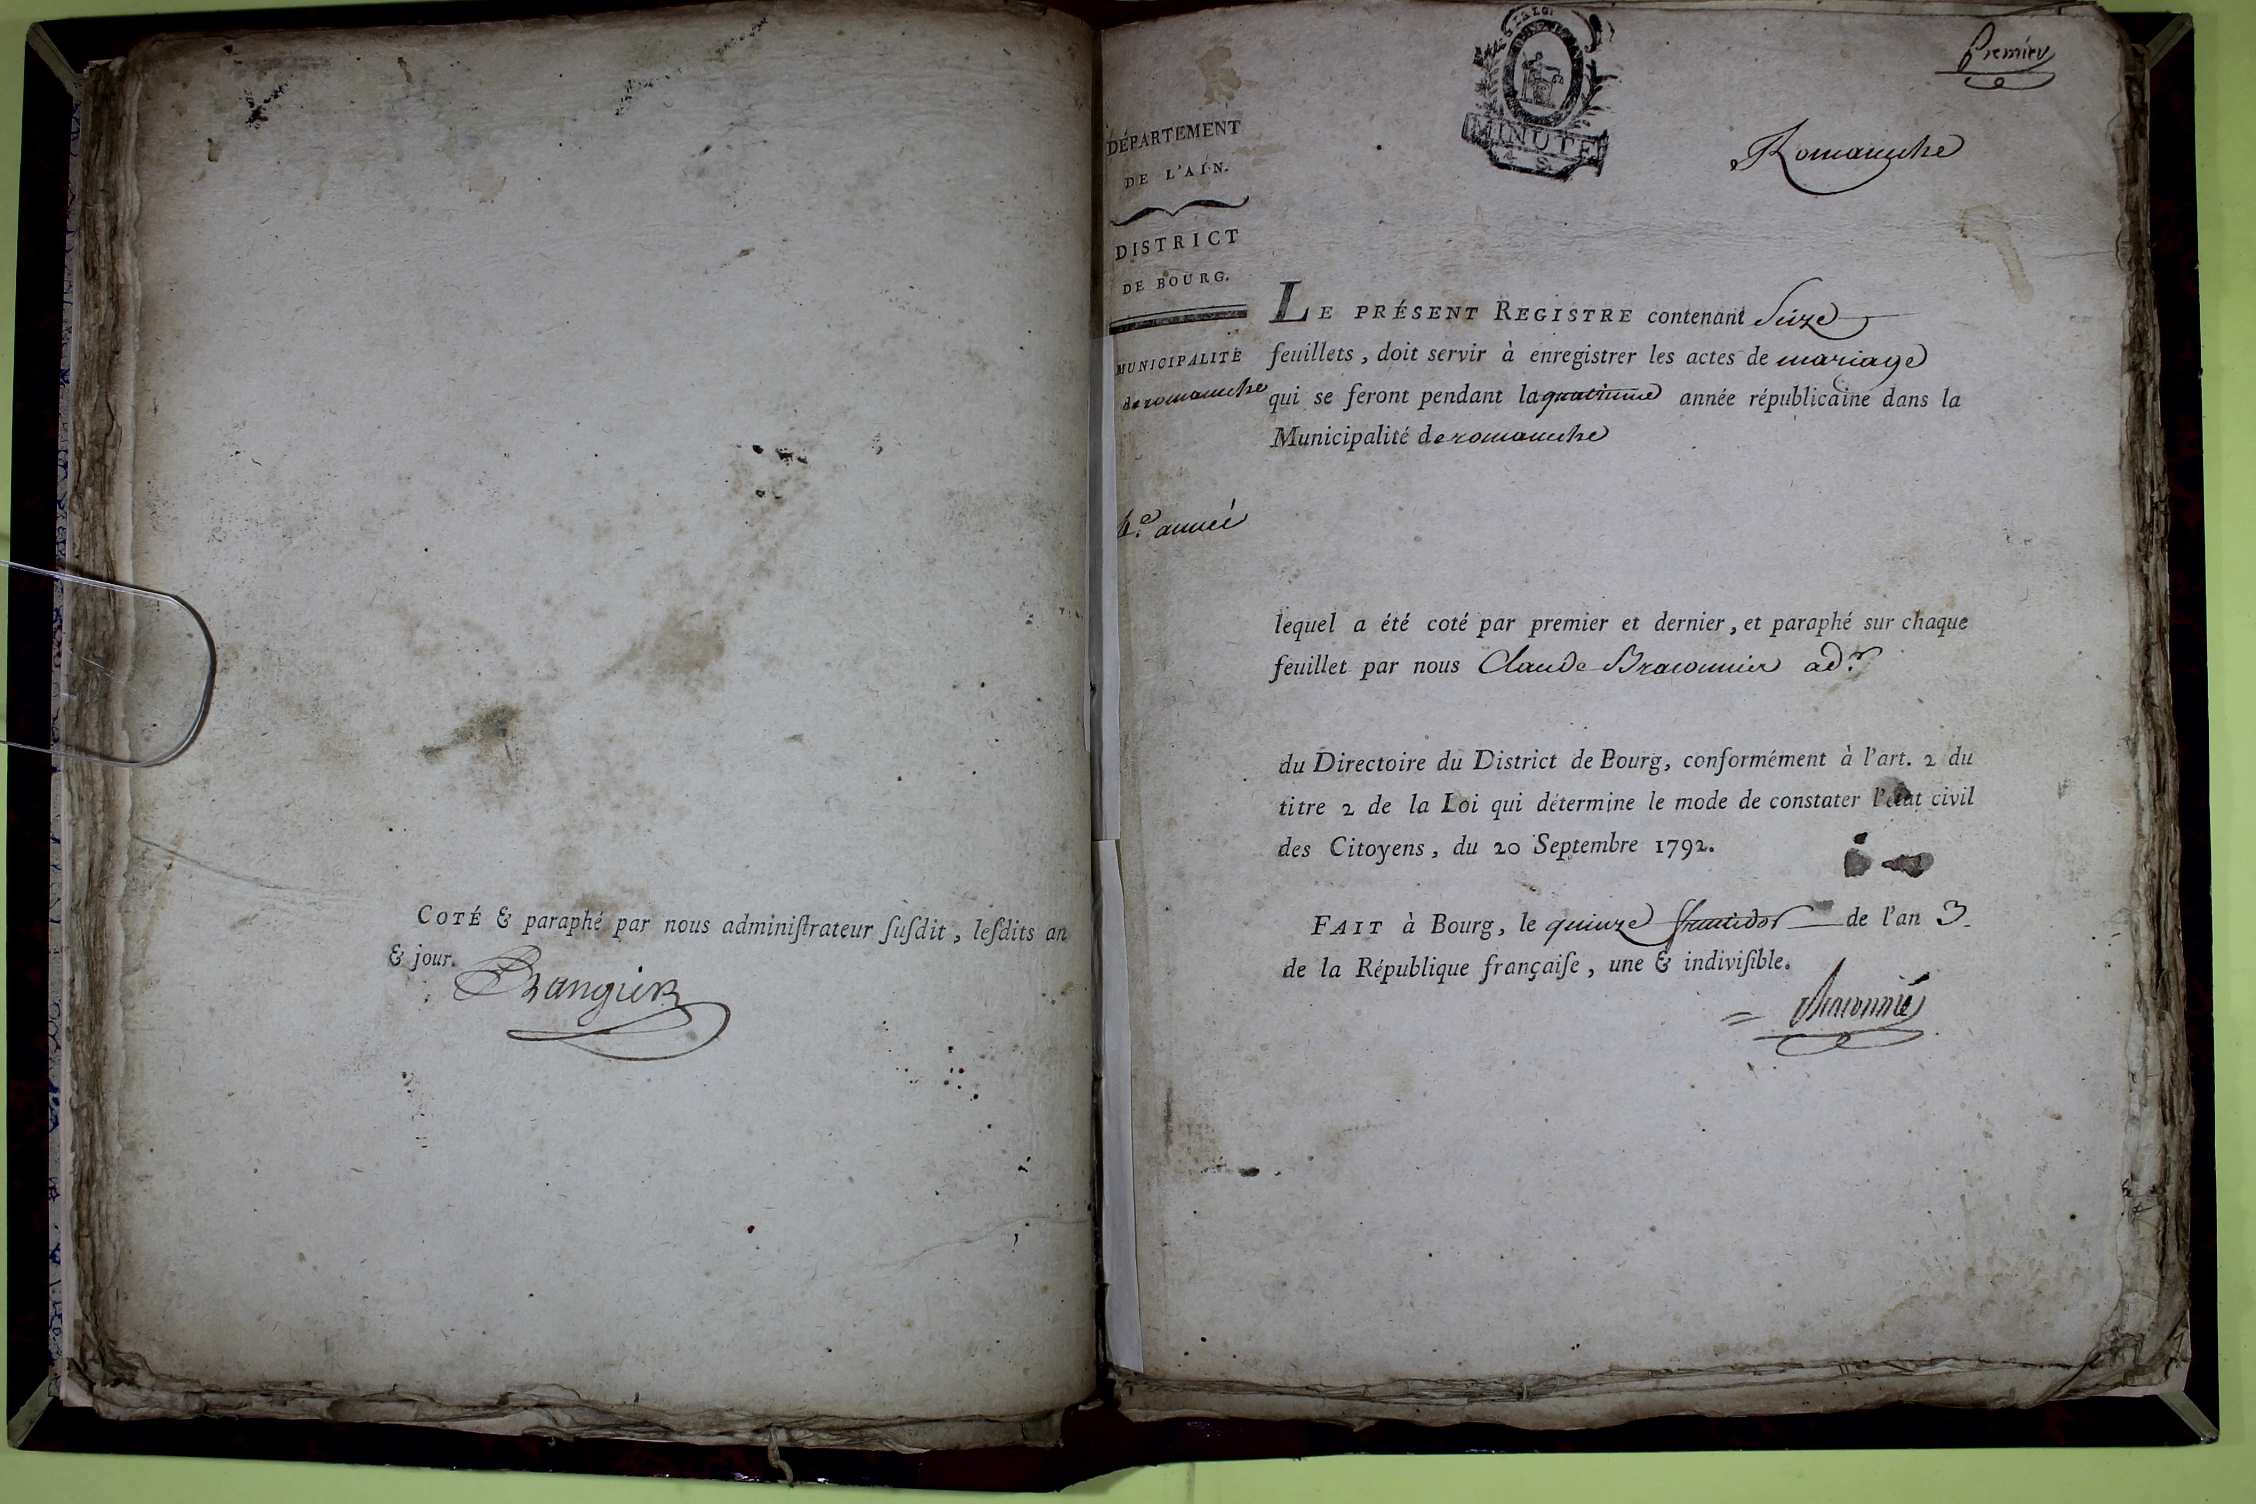 COTÉ & paraphé par nous adminiſtrateur ſuſdit, leſdits an
& jour.
Rangier
Premier
MINUTE
4 S
Romaneche
DÉPARTEMENT
DE L'AIN.
DISTRICT
DE BOURG.
MUNICIPALITÉ
de romaneche
4.e année
LE PRÉSENT REGISTRE contenant Seize
feuillets, doit servir à enregistrer les actes de mariage
qui se feront pendant la quatrieme année républicaine dans la
Municipalité de romaneche
lequel a été coté par premier et dernier, et paraphé sur chaque
feuillet par nous Claude Braconnier ad.r
du Directoire du District de Bourg, conformément à l'art. 2 du
titre 2 de la Loi qui détermine le mode de constater l'état civil
des Citoyens, du 20 Septembre 1792.
FAIT à Bourg, le quinze fructidor de l'an 3.
de la République françaiſe, une & indiviſible.
Braconnié